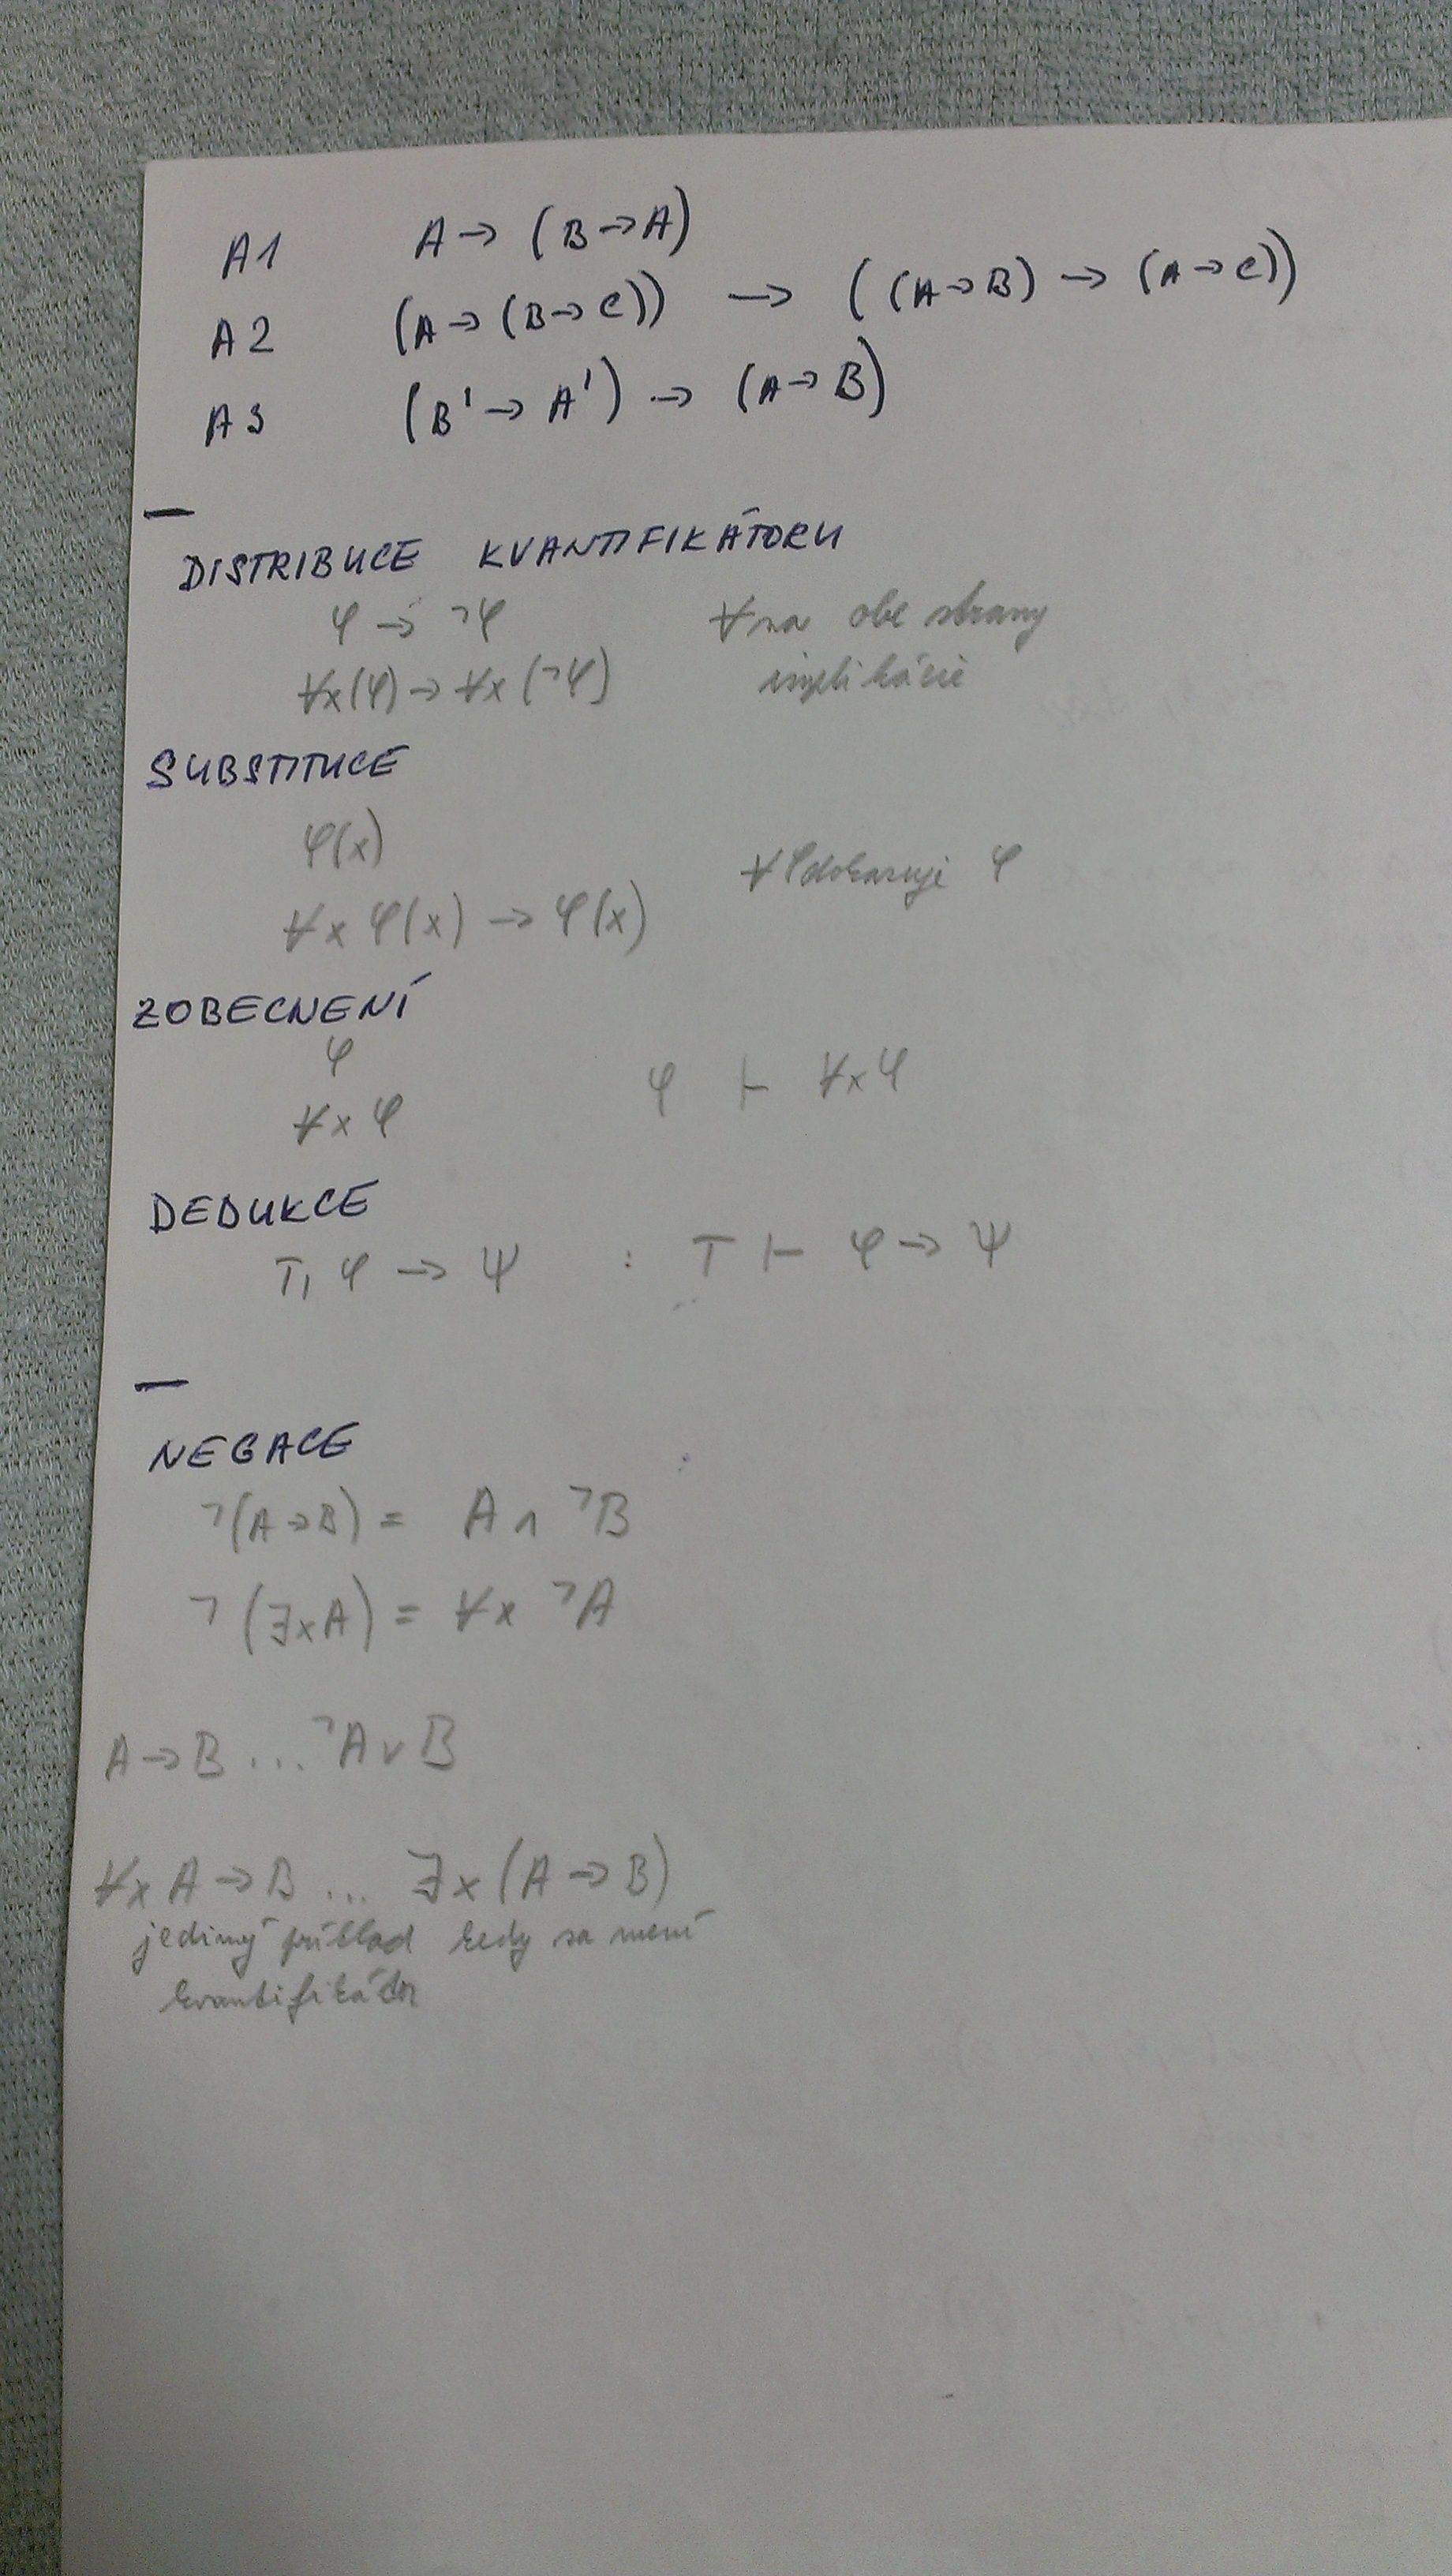 A1 A → (B → A)
A2 (A → (B → C)) → ((A → B) → (A → C))
A3 (B' → A') → (A → B)
—
DISTRIBUCE KVANTIFIKÁTORU
φ → ¬φ ∀ na obe strany
∀x(φ) → ∀x(¬φ) implikácie
SUBSTITUCE
φ(x)
∀x φ(x) → φ(x) ∀φ dokazuje φ
ZOBECNENÍ
φ
∀x φ φ ⊢ ∀x φ
DEDUKCE
T, φ → ψ : T ⊢ φ → ψ
—
NEGACE
¬(A → B) = A ∧ ¬B
¬(∃x A) = ∀x ¬A
A → B ... ¬A ∨ B
∀x A → B ... ∃x (A → B)
jediný príklad kedy sa mení
kvantifikátor